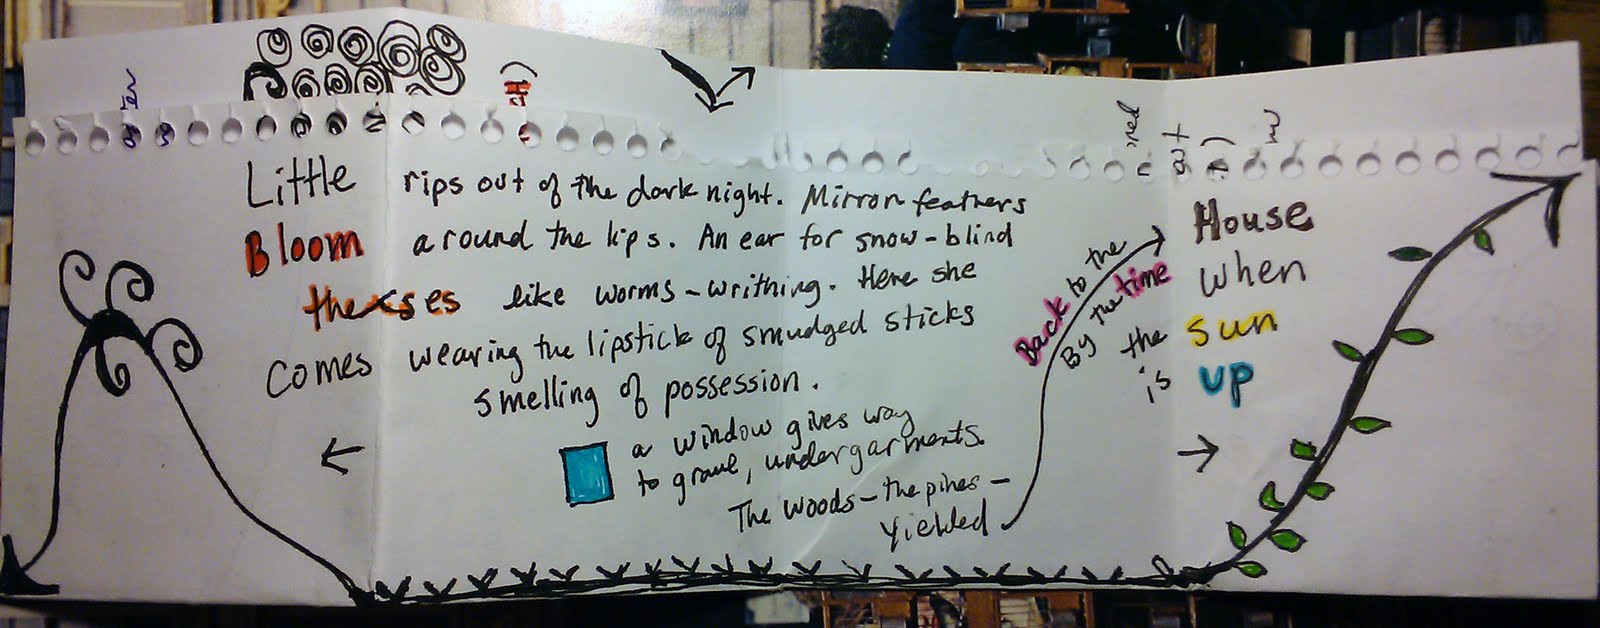 Little rips out of the dark night. Mirror feathers
Bloom around the lips. An ear for snow-blind
like worms-writhing. Here she
comes wearing the lipstick of smudged sticks
smelling of possession.
a window gives way
to grave, undergarments.
The woods-the pines-
Yielded
Back to the House
By the time when
the sun
is up